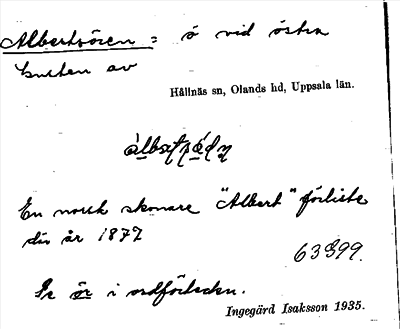 Albertsören = ö vid östra
kusten av
Hållnäs sn, Olands hd, Uppsala län.
En norsk skonare "Albert" förliste
där år 1877
63899.
Se ör i ordförteckn.
Ingegärd Isaksson 1935.